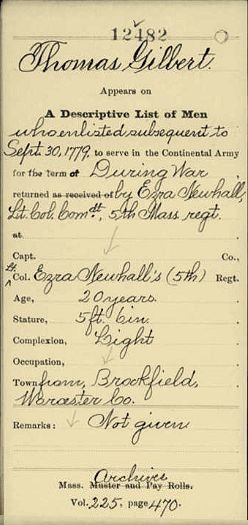 12482
Thomas Gilbert.
Appears on
A Descriptive List of Men
who enlisted subsequent to
Sept. 30, 1779, to serve in the Continental Army
for the term of During War
returned as received of by Ezra Newhall,
Lt. Col. Comdt, 5th Mass regt.
at
Capt. Co.,
Lt Col. Ezra Newhall's (5th) Regt.
Age, 20 years.
Stature, 5ft 6in.
Complexion, Light
Occupation,
Town from, Brookfield,
Worcester Co.
Remarks: Not given
Archives
Mass. Muster and Pay Rolls.
Vol. 225, page 470.